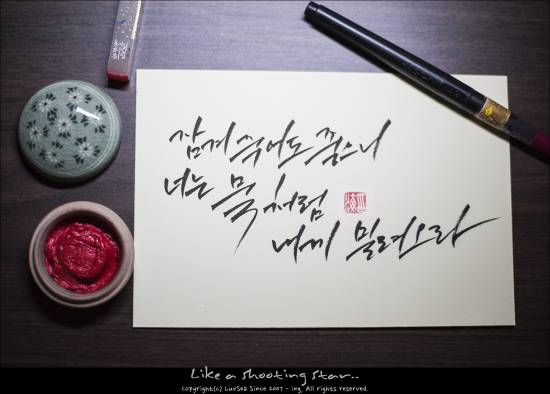 잠겨 죽어도 좋으니
너는 물처럼
내게 밀려오라
Like a shooting star..
Copyright(c) LuvSea Since 2007 - ing, All rights reserved.